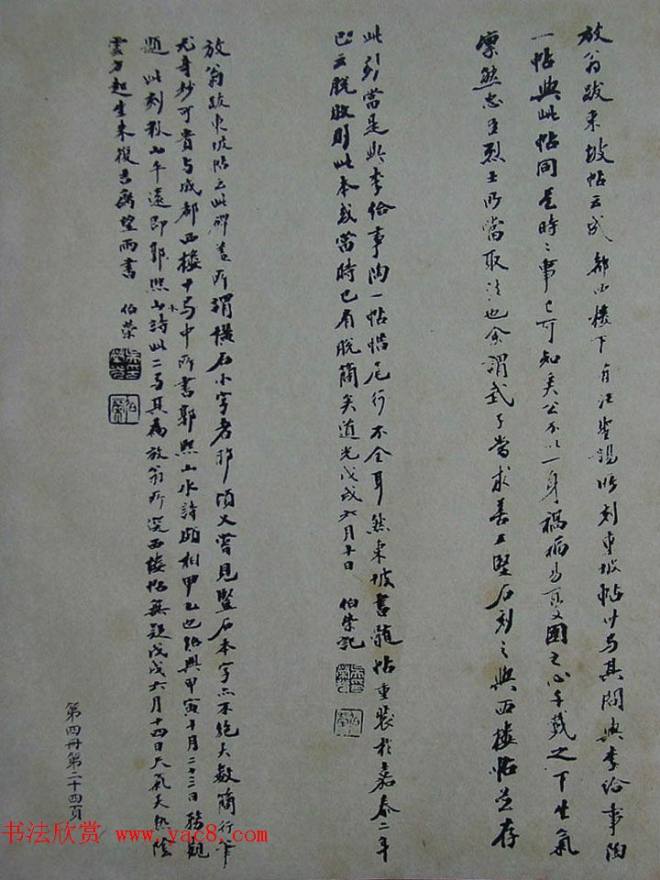 放翁跋東坡帖云成都西樓下有汪聖錫所刻東坡帖卅与其間與李給事陶
一帖與此帖同是時之事已可知矣公不以一身禍福易其憂國之心千載之下生氣
凛然忠臣烈士所當取法也余謂武子當求善工堅石刻之與西樓帖並存
此引當是與李給事陶一帖惜尾行不全耳然東坡書髓帖重裝於嘉泰二年
已云脫敗則此本或當時已有脫簡矣道光戊戌六月十日 伯榮記
放翁跋東坡帖云此碑蓋所謂橫石小字者耶頃又嘗見豎石本字亦不絕大數簡行草
尤奇妙可貴与成都西樓十弓中所書郭熙山水詩頗相甲乙也紹興甲寅十月二十三日務觀
題 此刻秋山平遠即郭熙山水詩此二弓其為放翁所
西樓帖無疑戊戌六月十四日天氣大熱陰
雲乍起坐未復書齋望雨書 伯榮
第四冊第二十四頁
书法欣赏 www.yac8.com